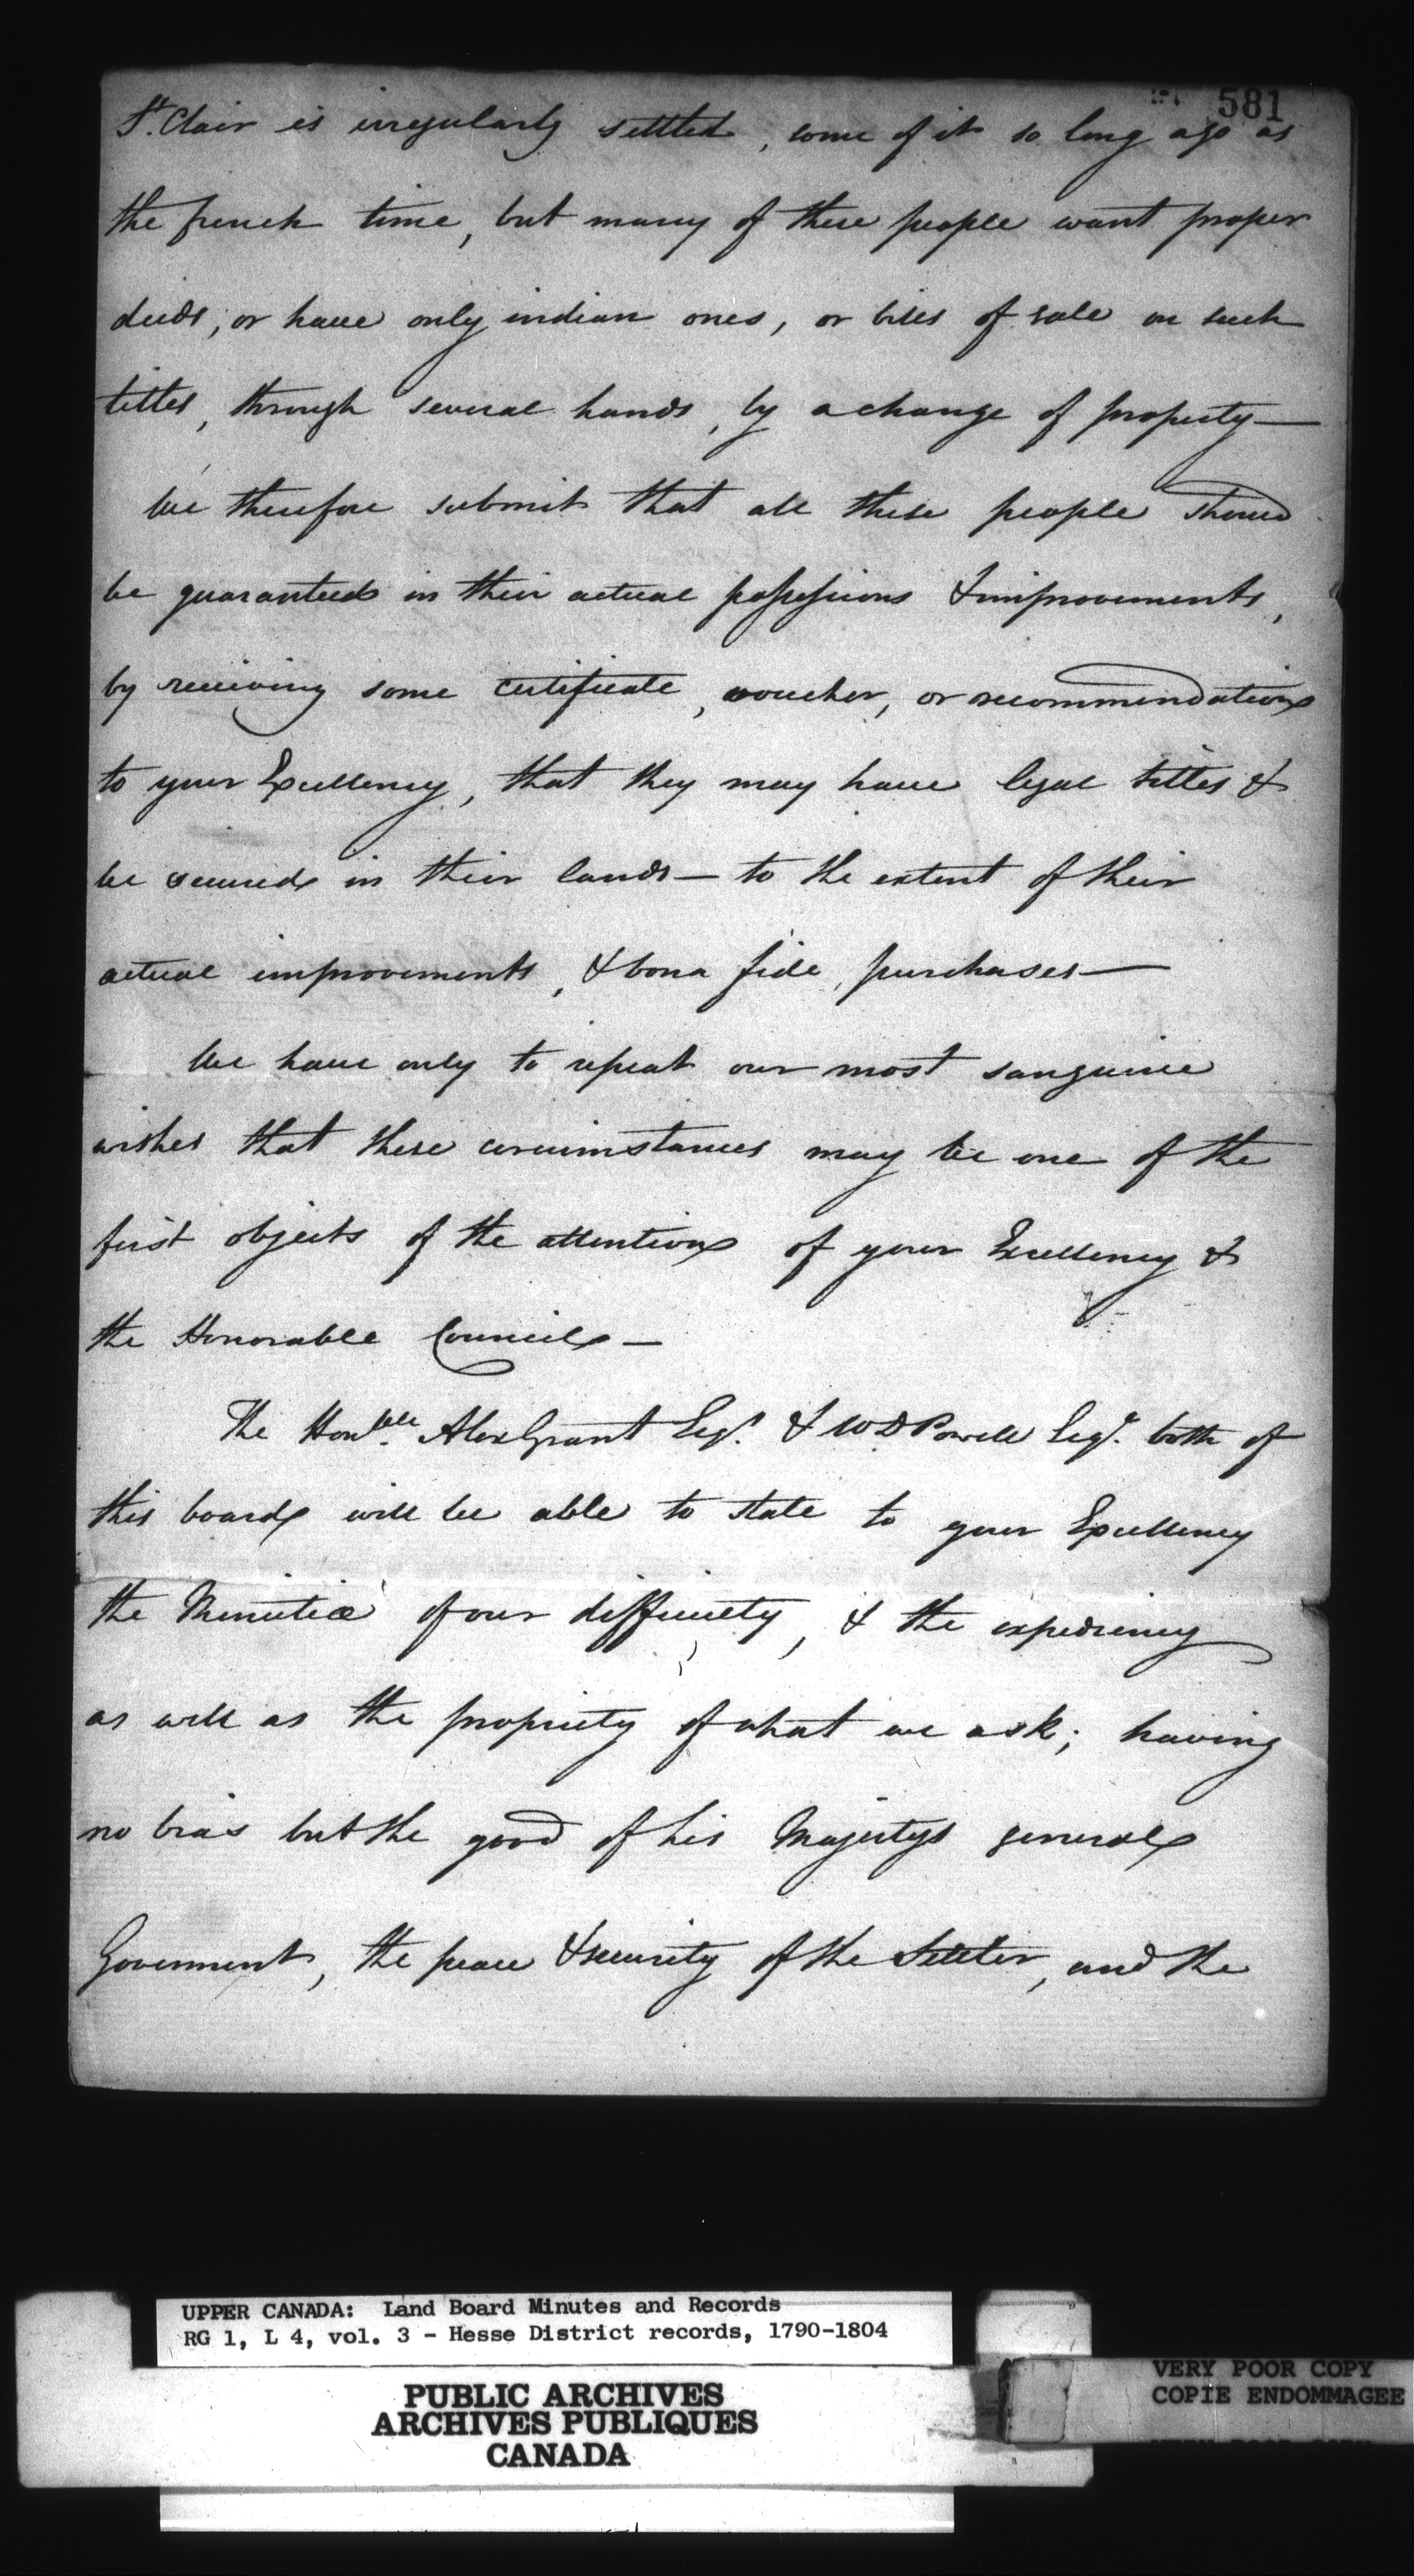 581
St. Clair is irregularly settled, some of it so long ago as
the french time, but many of these people want proper
deeds, or have only indian ones, or bills of sale on such
tittles, through several hands, by a change of property—
We therefore submit that all these people should
be guaranteed in their actual possessions & improvements,
by receiving some certificate, voucher, or recommendation
to your Excellency, that they may have legal tittles &
be secured in their lands — to the extent of their
actual improvements, & bona fide purchases—
We have only to repeat our most sanguine
wishes that these circumstances may be one of the
first objects of the attention of your Excellency &
the Honorable Council —
The Honble. Alex Grant Esqr. & W D Powell Esqr. both of
this board will be able to state to your Excellency
the Minutiæ of our difficulty, & the expediency
as well as the propriety of what we ask; having
no bias but the good of his Majestys general
Government, the peace & security of the Settler, and the
UPPER CANADA: Land Board Minutes and Records
RG 1, L 4, vol. 3 - Hesse District records, 1790-1804
PUBLIC ARCHIVES
ARCHIVES PUBLIQUES
CANADA
VERY POOR COPY
COPIE ENDOMMAGEE